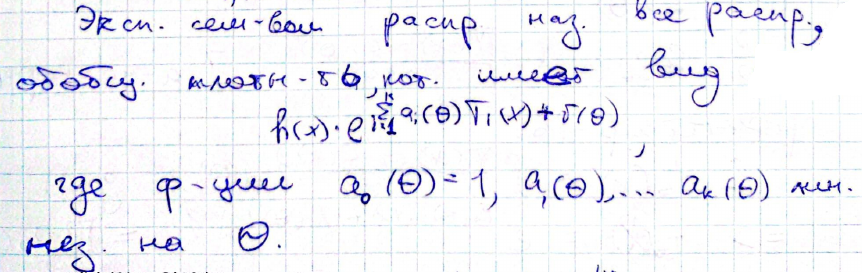 Эксп. сем-вом распр наз. все распр.,
обобщ. плотн-ть, кот. имеет вид
h(x)·e^{\sum_{i=1}^{k} a_i(θ)T_i(x)+V(θ)},
где ф-ции a_0(θ)=1, a_1(θ),... a_k(θ) лин.
нез. на Θ.